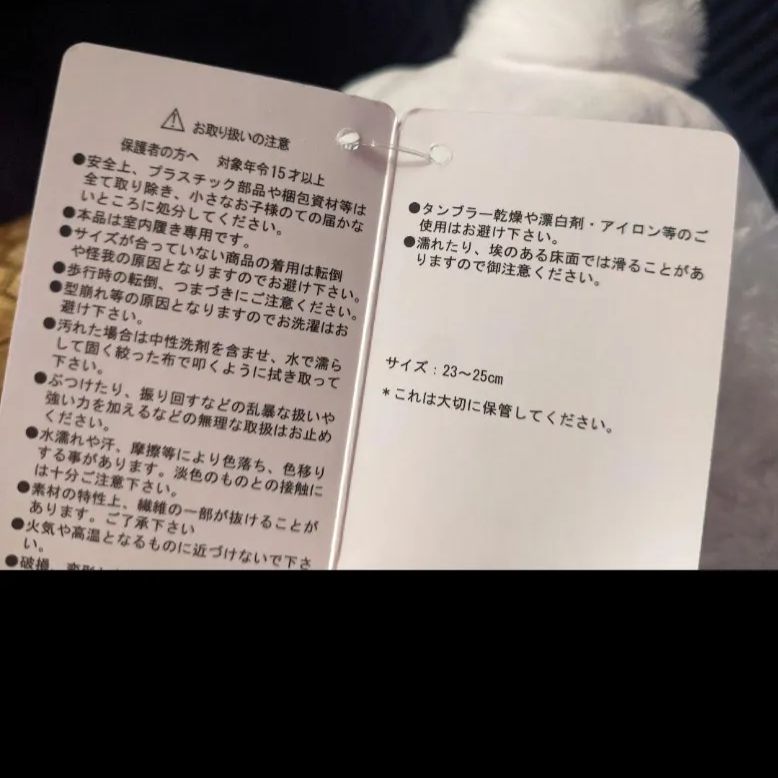 お取り扱いの注意
保護者の方へ 対象年令15才以上
●安全上、プラスチック部品や梱包資材等は
全て取り除き、小さなお子様のての届かな
いところに処分してください。
●本品は室内履き専用です。
●サイズが合っていない商品の着用は転倒
や怪我の原因となりますのでお避け下さい。
●歩行時の転倒、つまづきにご注意ください。
●型崩れ等の原因となりますのでお洗濯はお
避け下さい。
●汚れた場合は中性洗剤を含ませ、水で濡ら
して固く絞った布で叩くように拭き取って
下さい。
●ぶつけたり、振り回すなどの乱暴な扱いや
強い力を加えるなどの無理な取扱はお止め
ください。
●水濡れや汗、摩擦等により色落ち、色移り
する事があります。淡色のものとの接触に
は十分ご注意下さい。
●素材の特性上、繊維の一部が抜けることが
あります。ご了承下さい
●火気や高温となるものに近づけないで下さ
い。
●破損、変形
●タンブラー乾燥や漂白剤・アイロン等のご
使用はお避け下さい。
●濡れたり、埃のある床面では滑ることがあ
りますので御注意ください。
サイズ：23～25cm
*これは大切に保管してください。